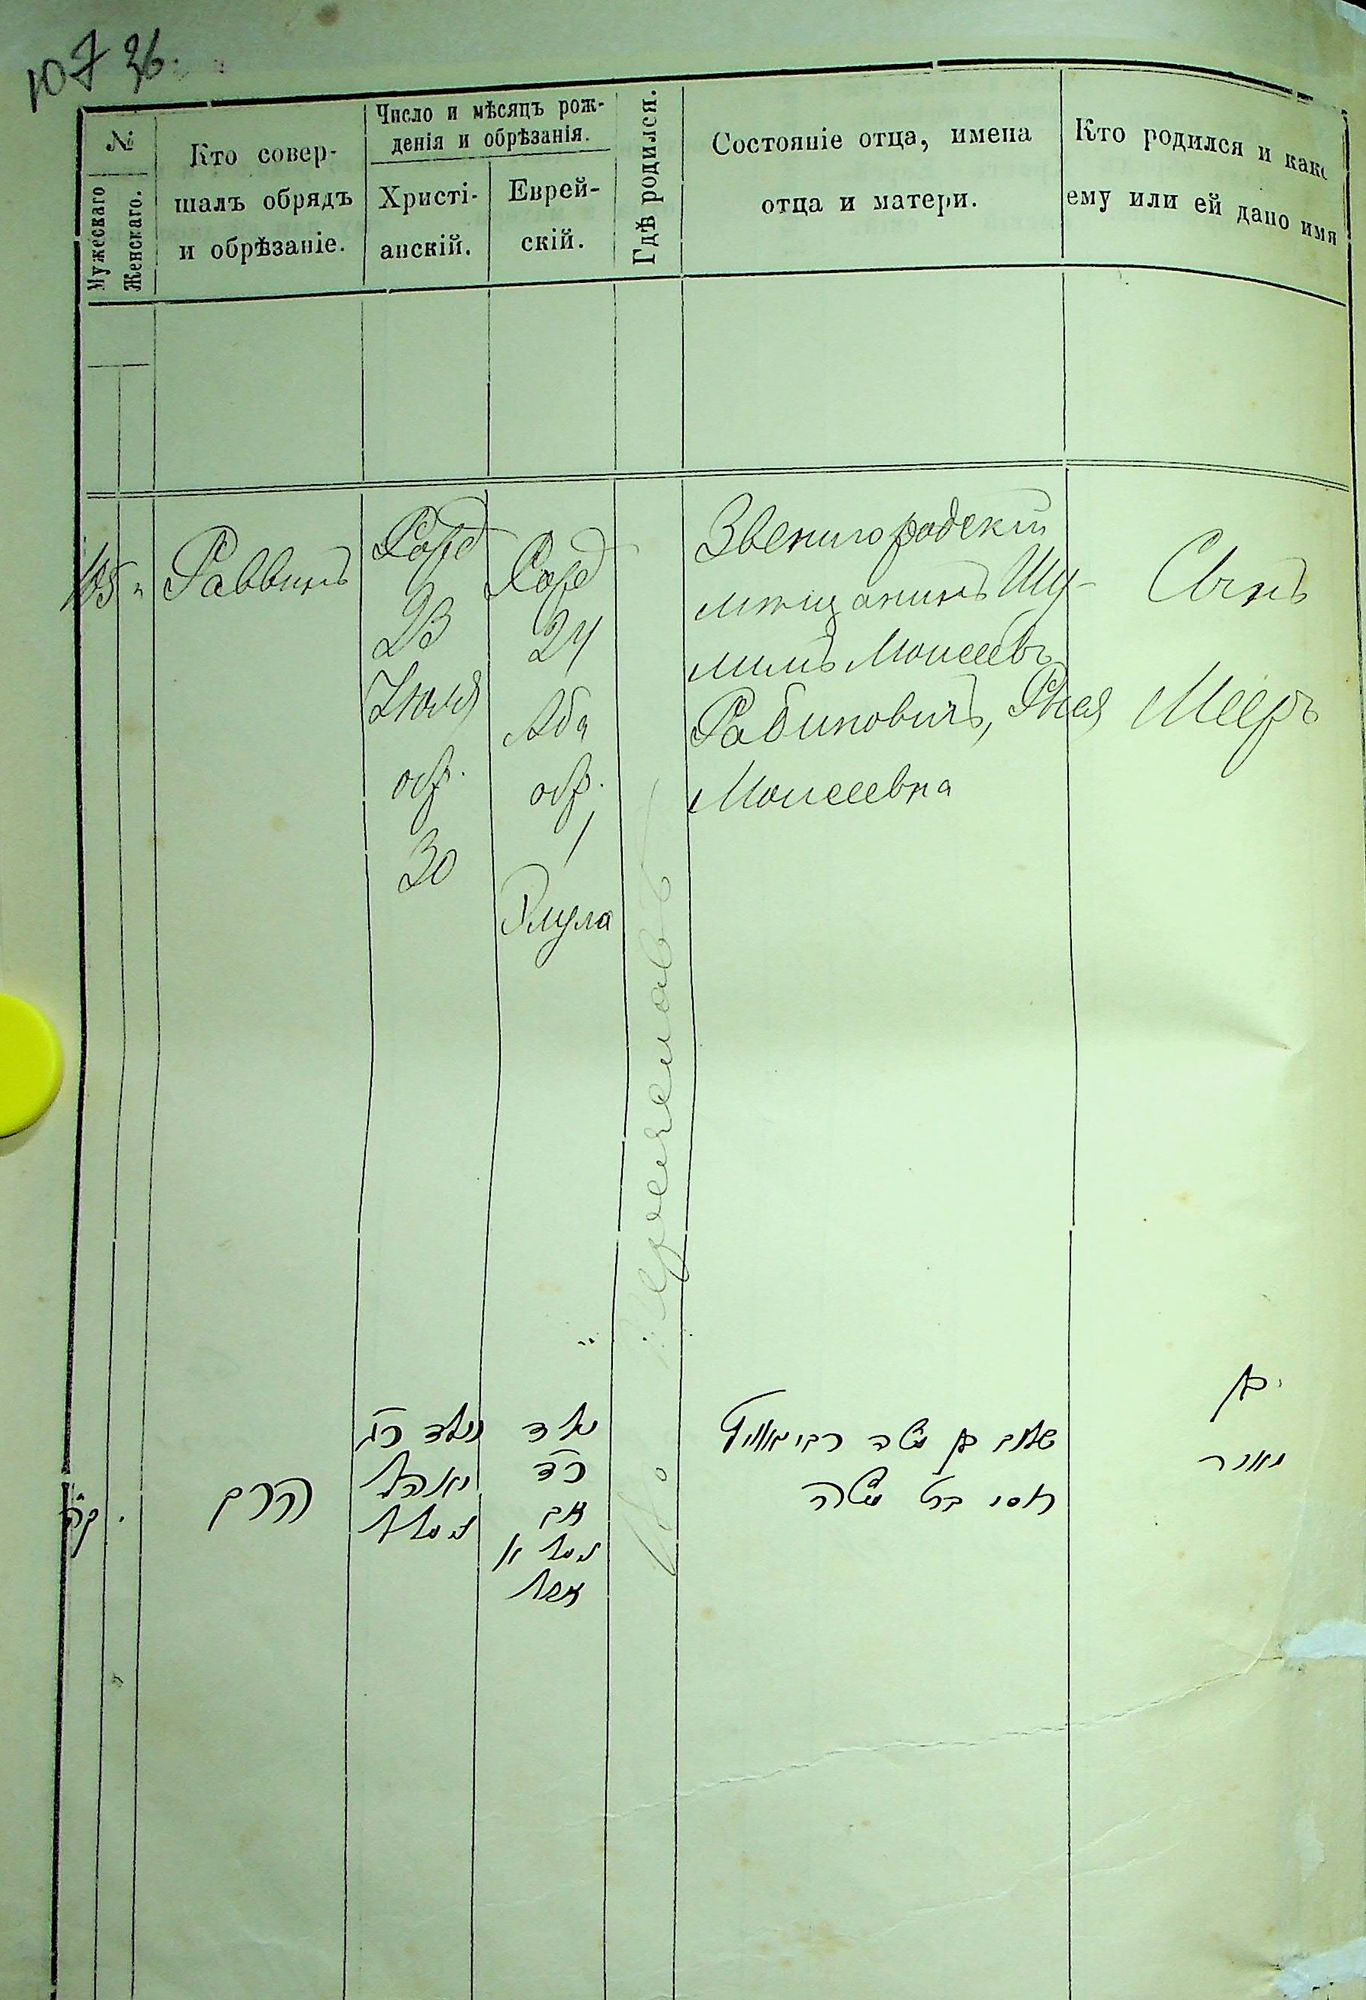 107 36.
№
Мужескаго
Женскаго.
Кто совер-
шалъ обрядъ
и обрѣзаніе.
Число и мѣсяцъ рож-
денія и обрѣзанія.
Христі-
анскій.
Еврей-
скій.
Гдѣ родился.
Состояніе отца, имена
отца и матери.
Кто родился и како
ему или ей дано имя
105 "
Раввинъ
Рожд
23
Іюля
обр.
30
Рожд
24
Аба
обр.
1
Элула
Звенигородскій
мѣщанинъ Шу-
лимъ Моисеевъ
Рабиновичъ, Рися
Моисеевна
Сынъ
Мееръ
קה
הרב
נולד כג
יולי
נימול ל
נולד
כד
אב
נימול א
אלול
שלום בן משה רבינאוויץ
ריסי בת משה
בן
מאיר